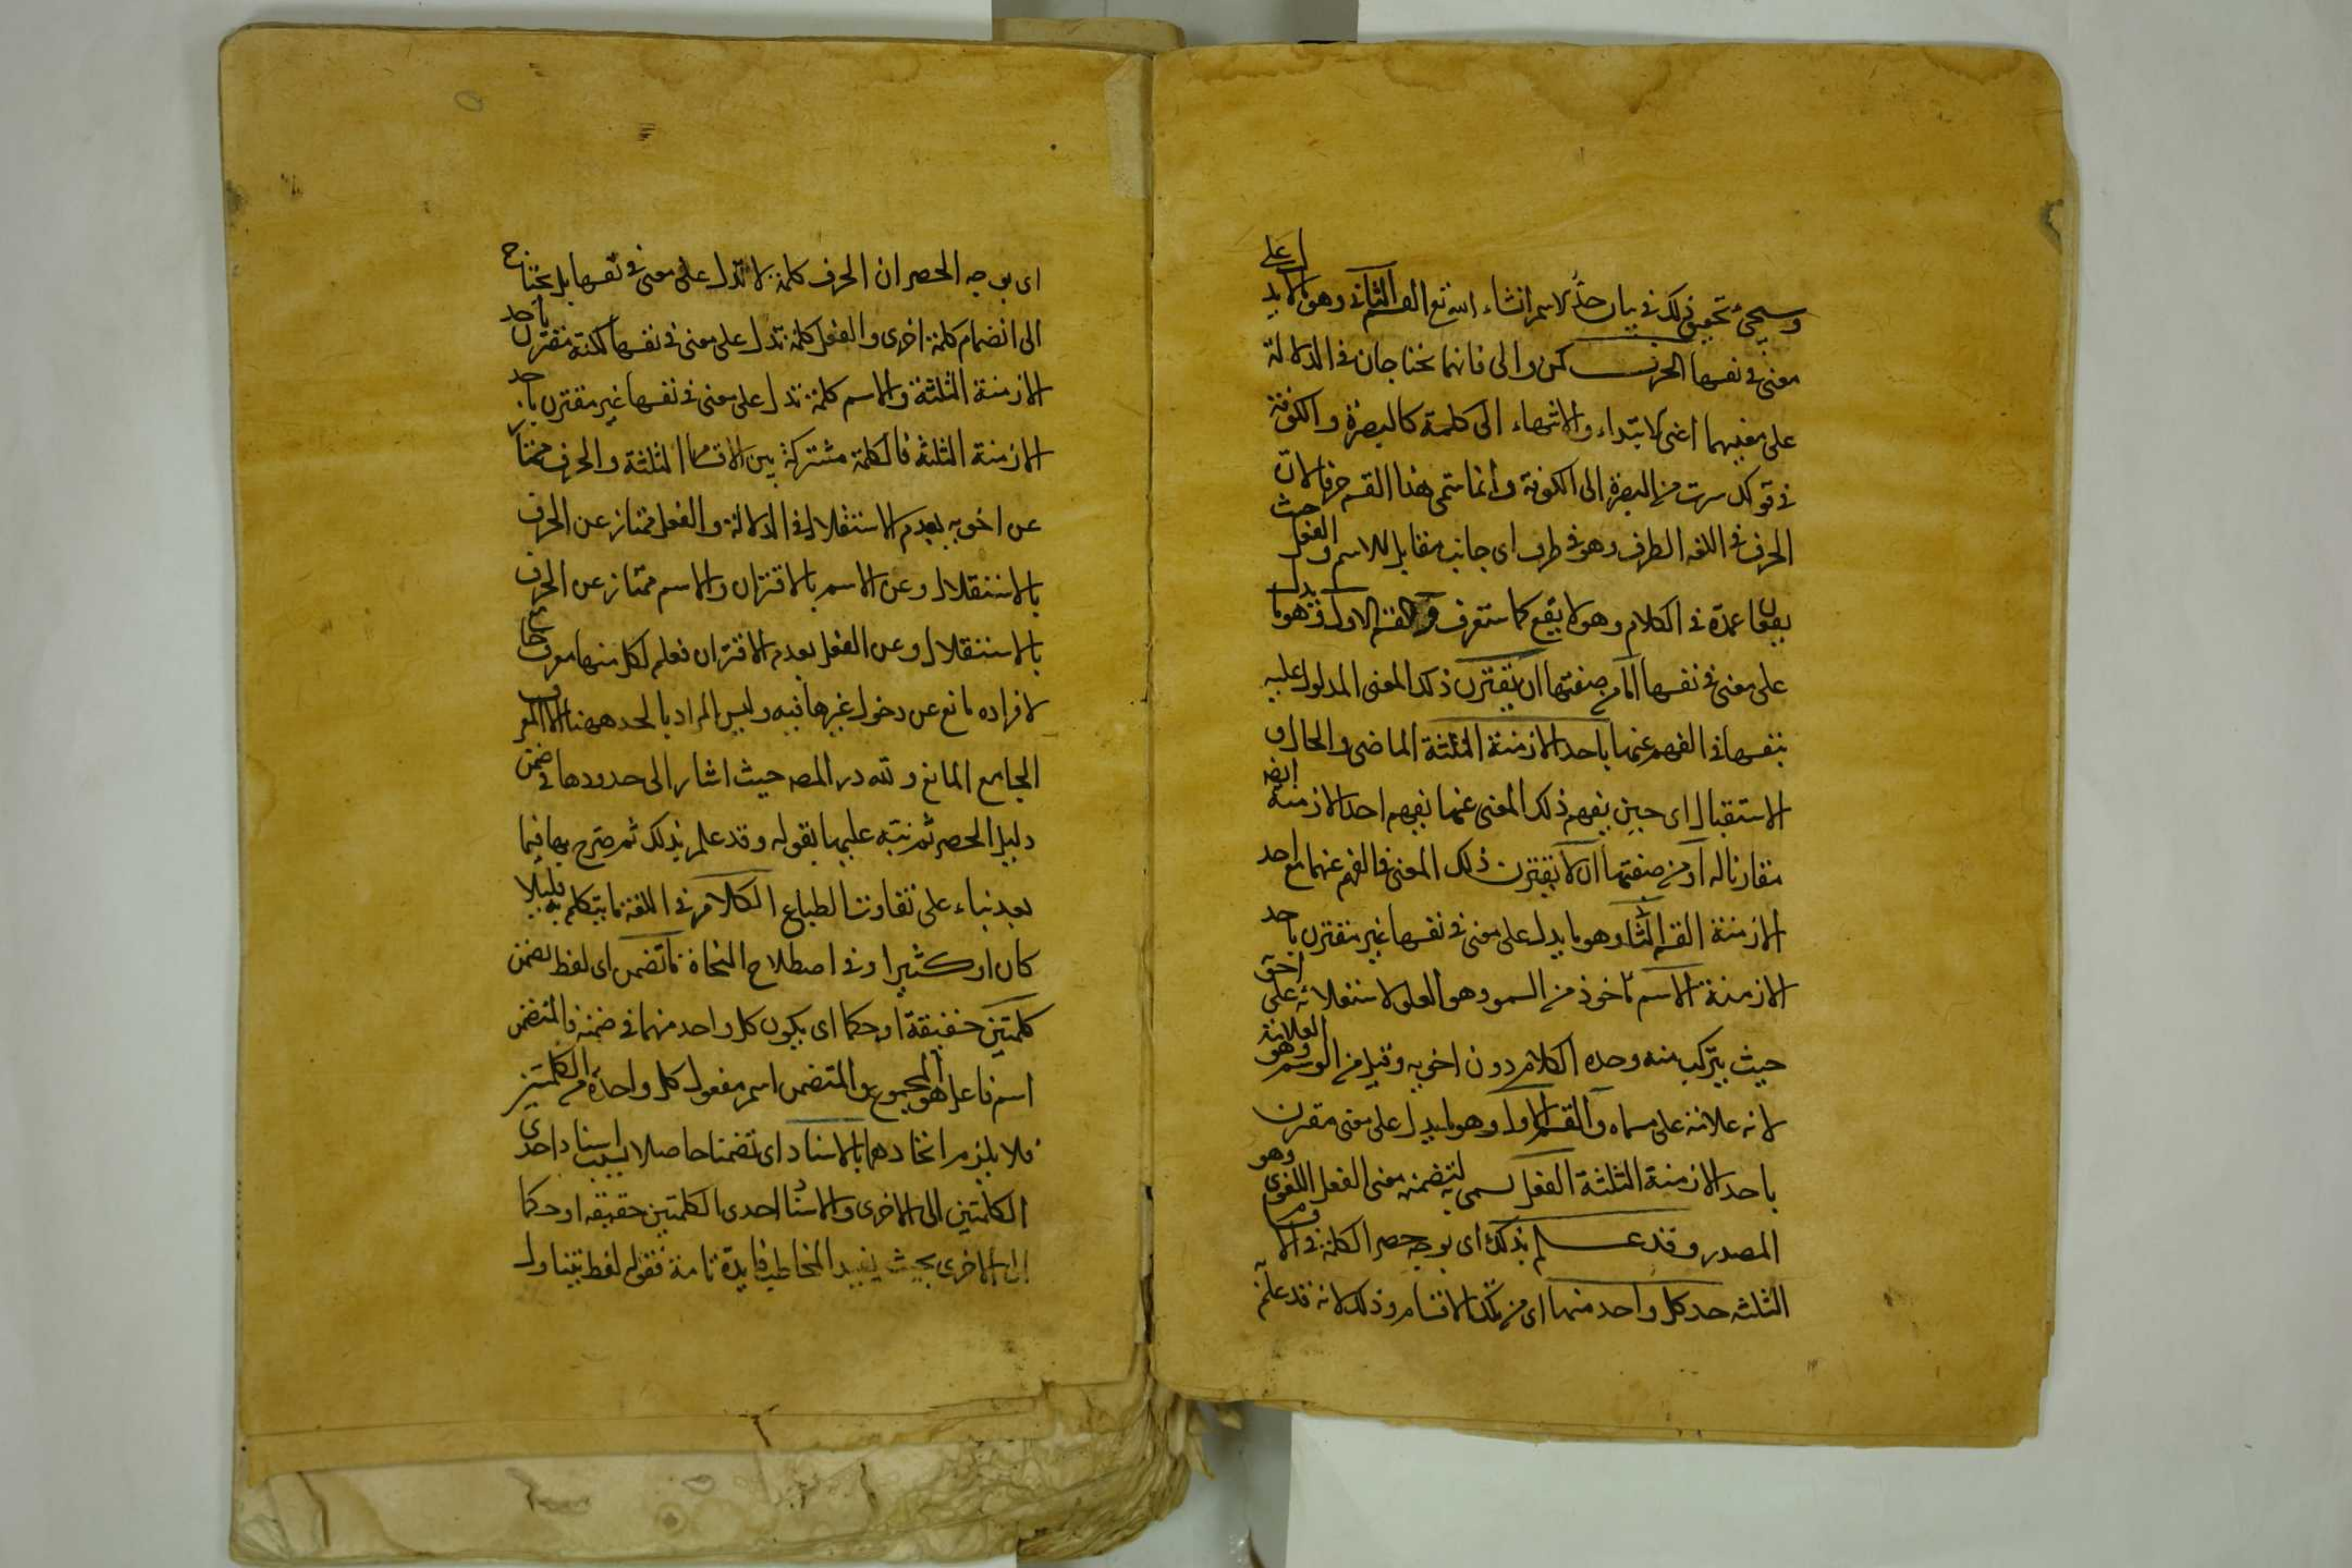 وسيجئ تحقيق ذلك في بيان حد الاسم انشاء الله تع القسم الثاني وهو ما لا يدل على
معنى في نفسها الحرف كمن والى فانهما يحتاجان في الدلالة
على معنييهما اعنى الابتداء والانتهاء الى كلمة كالبصرة والكوفة
في قولك سرت من البصرة الى الكوفة وانما سمى هذا القسم حرفا لان
الحرف في اللغة الطرف وهو في طرف اى جانب مقابل للاسم والفعل حيث
يقعان عمدة في الكلام وهو لا يقع كما ستعرف والقسم الاول وهو ما يدل
على معنى في نفسها اما من صفتها ان يقترن ذلك المعنى المدلول عليه
بنفسها في الفهم عنها باحد الازمنة الثلثة الماضى والحال و
الاستقبال اى حين يفهم ذلك المعنى عنها يفهم احد الازمنة ايضه
مقارنا له او من صفتها ان لا يقترن ذلك المعنى في الفهم عنها مع احد
الازمنة القسم الثا وهو ما يدل على معنى في نفسها غير مقترن باحد
الازمنة الاسم ماخوذ من السمو وهو العلو لاستعلائه على اخو
حيث يتركب منه وحده الكلام دون اخويه وقيل من الوسم وهو العلامة
لانه علامة على مسماه والقسم الاول وهو ما يدل على معنى مقترن
باحد الازمنة الثلثة الفعل سمى به لتضمنه معنى الفعل اللغوى وهو
المصدر وقد علم بذلك اى بوجه حصر الكلمة في الا
الثلثه حد كل واحد منها اى من تلك الاقسام وذلك لانه قد علم
اى بوجه الحصر ان الحرف كلمة لا تدل على معنى في نفسها بل يحتاج
الى انضمام كلمة اخرى والفعل كلمة تدل على معنى في نفسها لكنه مقترن باحد
الازمنة الثلثة والاسم كلمة تدل على معنى في نفسها غير مقترن باحد
الازمنة الثلثة فالكلمة مشتركة بين الاقسام الثلثة والحرف ممتاز
عن اخويه بعدم الاستقلال في الدلالة والفعل ممتاز عن الحرف
بالاستقلال وعن الاسم بالاقتران والاسم ممتاز عن الحرف
بالاستقلال وعن الفعل بعدم الاقتران فعلم لكل منها معرف جامع
لافراده مانع عن دخول غيرها فيه وليس المراد بالحد ههنا الا المعرف
الجامع المانع ولله در المصه حيث اشار الى حدودها في ضمن
دليل الحصر ثم نبه عليها بقوله وقد علم بذلك ثم صرح بها فيما
بعد بناء على تفاوت الطبايع الكلام في اللغة ما يتكلم به قليلا
كان او كثيرا وفي اصطلاح النحاة ما تضمن اى لفظ تضمن
كلمتين حقيقة او حكما اى يكون كل واحد منهما في ضمنه فالمتضمن
اسم فاعل هو المجموع والمتضمن اسم مفعول كل واحدة من الكلمتين
فلا يلزم اتحادهما بالاسناد اى تضمنا حاصلا بسبب اسناد احدى
الكلمتين الى الاخرى والاسناد احدى الكلمتين حقيقه او حكما
الى الاخرى بحيث يفيد المخاطب فايدة تامة فقوله لفظ يتناول